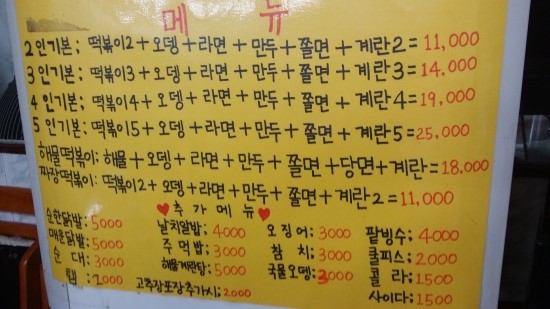 메뉴
2인기본; 떡볶이2+오뎅+라면+만두+쫄면+계란2=11,000
3인기본; 떡볶이3+오뎅+라면+만두+쫄면+계란3=14,000
4인기본; 떡볶이4+오뎅+라면+만두+쫄면+계란4=19,000
5인기본; 떡볶이5+오뎅+라면+만두+쫄면+계란5=25,000
해물떡볶이: 해물+오뎅+라면+만두+쫄면+당면+계란=18,000
짜장떡볶이: 떡볶이2+오뎅+라면+만두+쫄면+계란2=11,000
♥추가메뉴♥
순한닭발; 5000 날치알밥; 4000 오징어; 3000 팥빙수; 4000
매운닭발; 5000 주먹밥; 3000 참치; 3000 쿨피스; 2000
순대; 3000 해물계란탕; 5000 국물오뎅; 3000 콜라; 1500
햄; 2000 고추장포장추가시; 2000 사이다; 1500